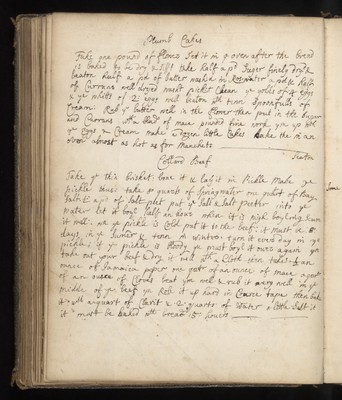 Plumb Cakes
Take one pound of flower Set it in ye oven after the bread
is baked to be dry take half a pd Suger finely
beaten half a pd of butter washed in Rosewater a pd & half
of Currans well dryed washt pickt clean ye yolks of 4 eggs
& ye whits of 2 eggs well beten wth tenn Spoonfulls of
Cream: Rub ye butter well in the flower then put in the Suger
and Currans of mace pound fine work ym up with
ye eggs & Cream make Dozen little Cakes bake the in an
oven almost as hot as for Manchets
Collard Beef
Take ye thin brisket: bone it & lay it in Make ye
pickle thus: take quarts of Springwater one quart of Bay
Salt: pd of salt peter put ye Salt & Salt Petter into ye
water let it boyl half an hour when it is high boyling Scum
it well. wn ye pickle is Cold put it to the beef: it must be 8
days in ye Sumer & tenn in winter: turn it every day in ye
pickle: if ye pickle is bloody yu must boyl it once again yn
take out your beef & dry it well wth a Cloth then take an
ounce of Jamaica peper one qart of an ounce of mace a quart
of an ounce of Cloves beat ym well & rub it in ye
middle of ye beef yn Role it up hard in Coarce tape then bake
it wth a quart of Clarit & 2 quarts of water a little Salt in
it must be baked wth bread 5 hours